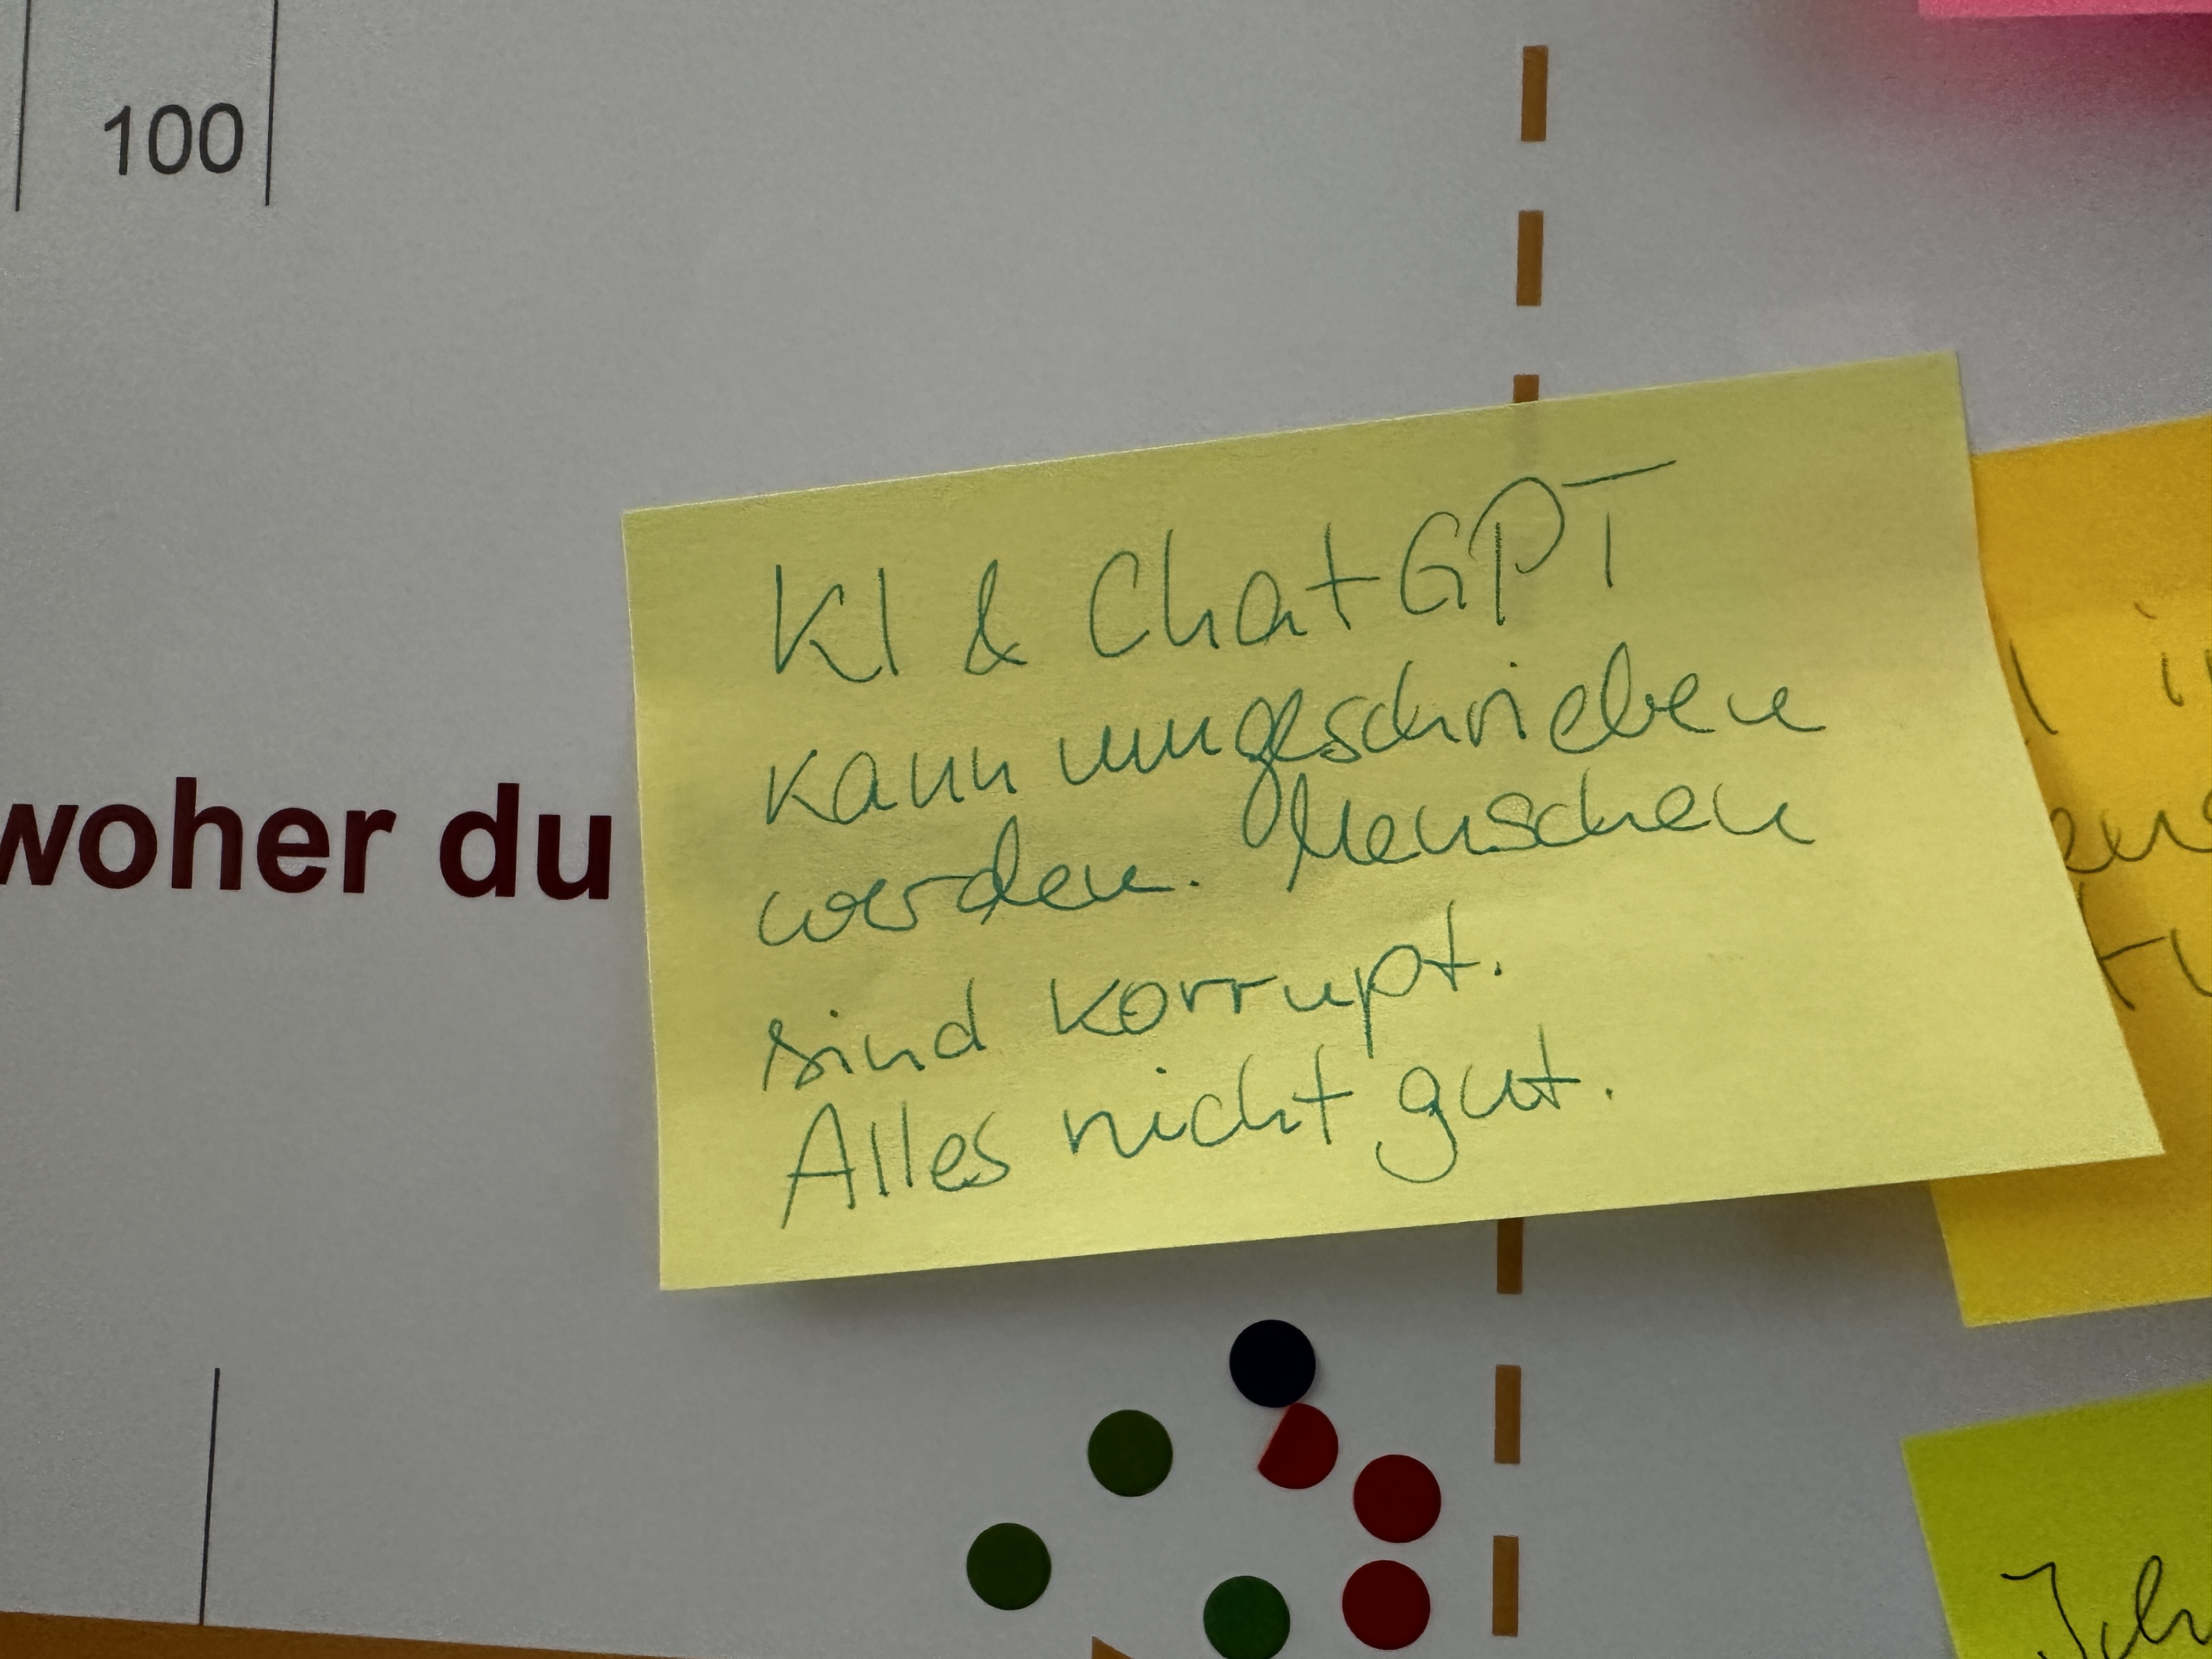 100
woher du
KI & ChatGPT
kann umgeschrieben
werden. Menschen
sind korrupt.
Alles nicht gut.
Ich